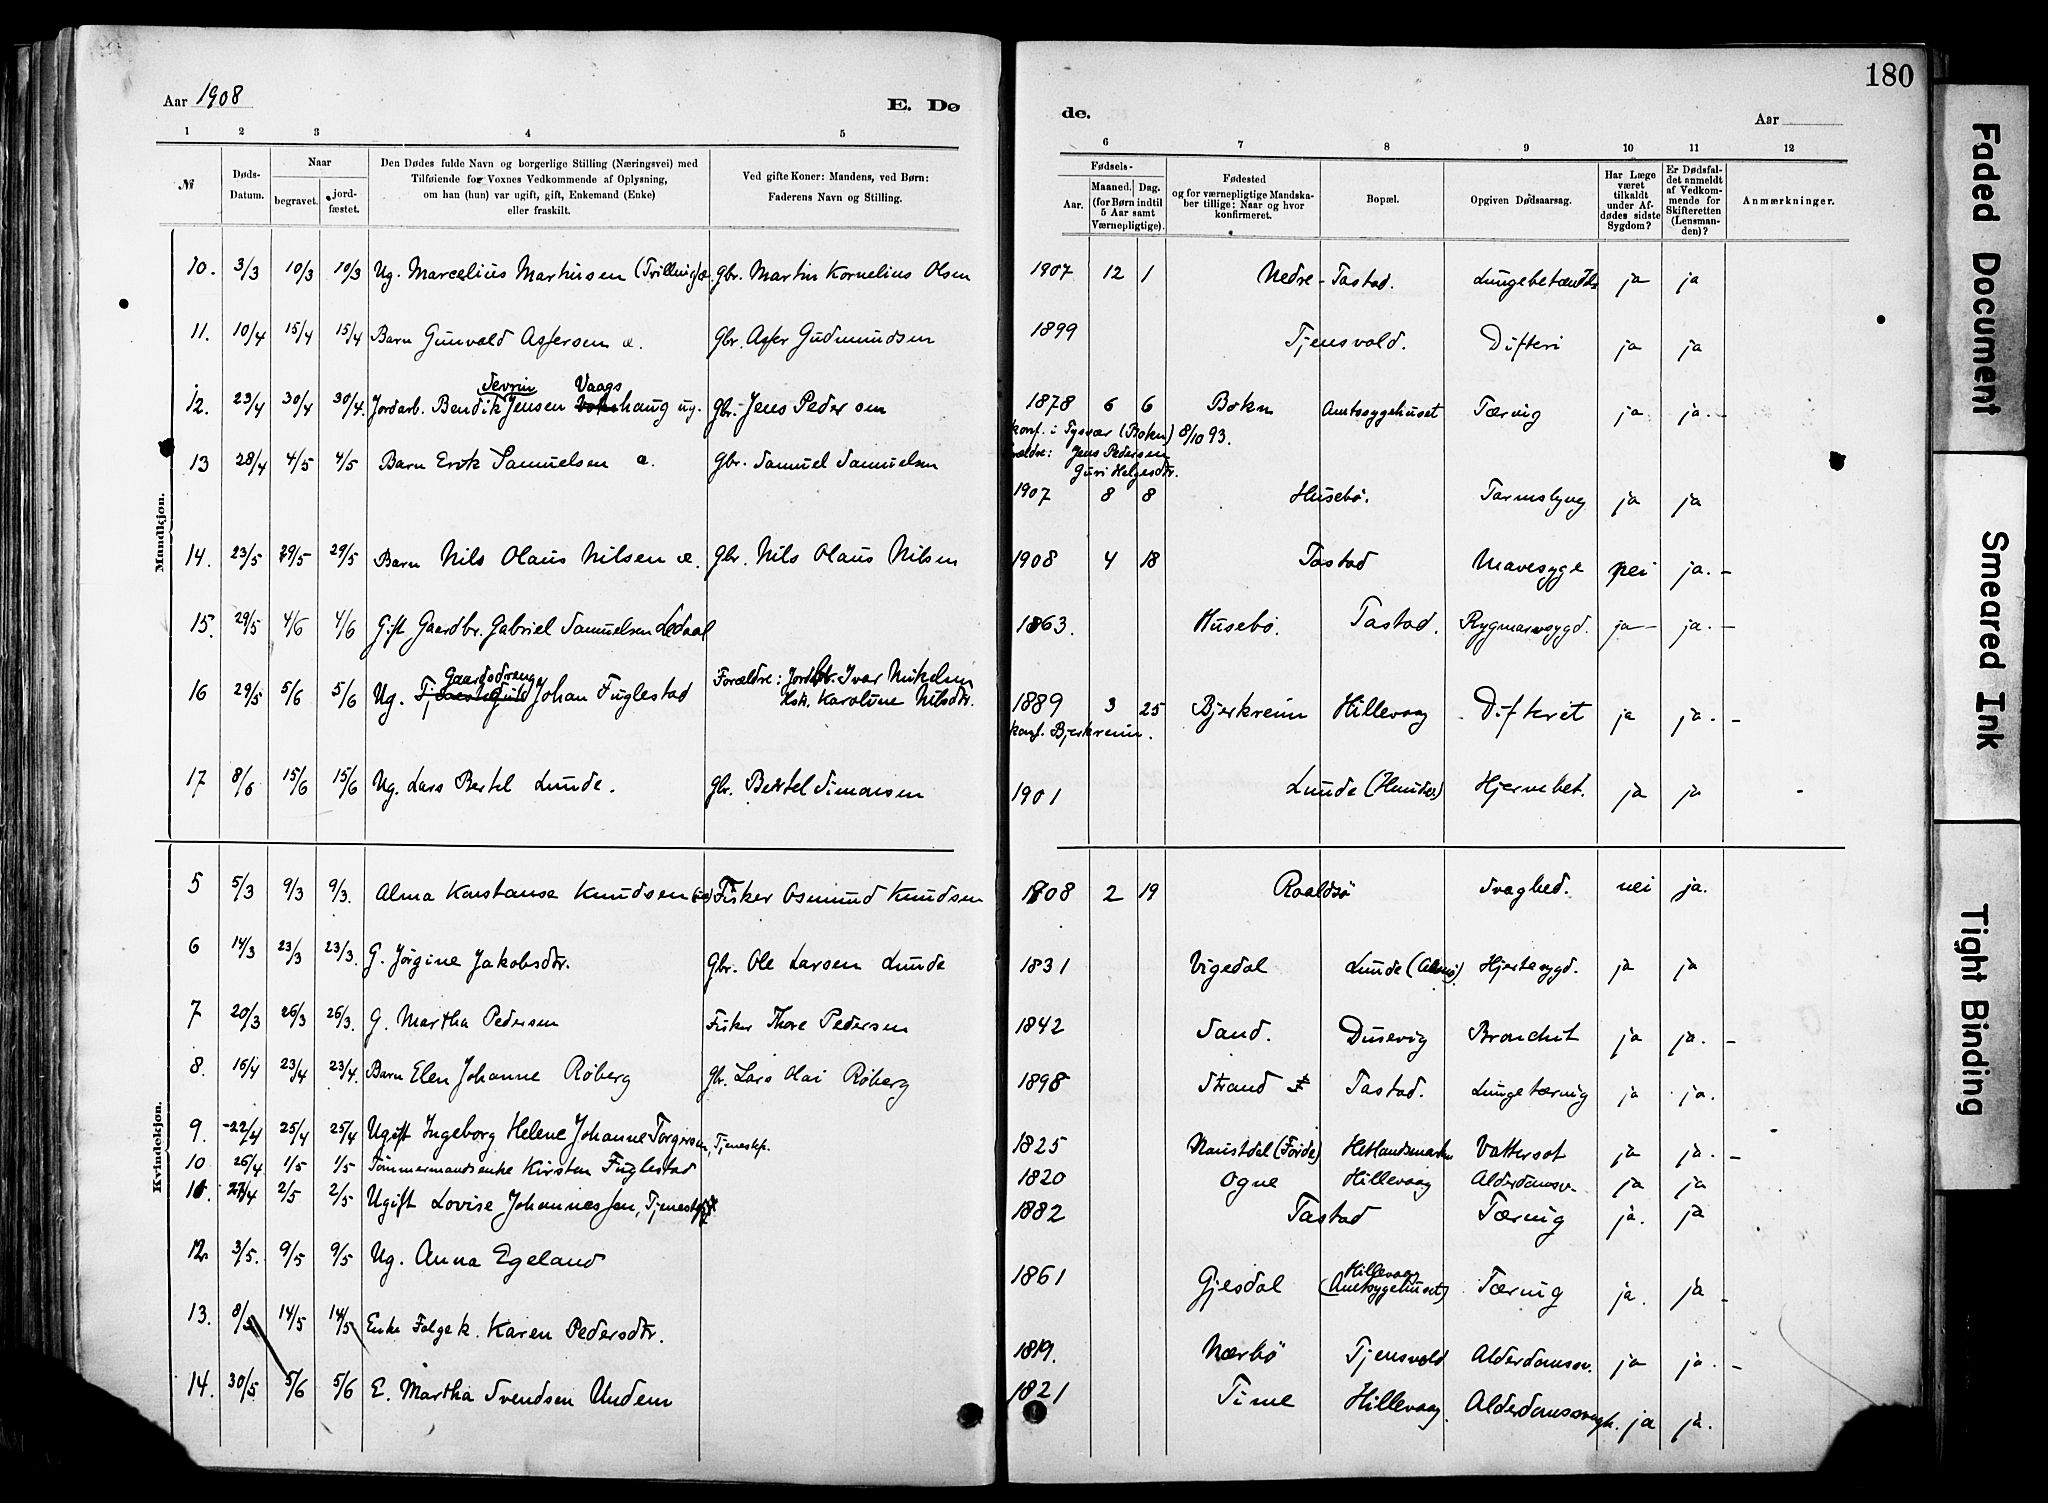 180
Aar 1908
E. Dø
de.
Aar
1 2 3 4 5
6 7 8 9 10 11 12
№
Døds-Datum.
Naar
begravet.
jordfæstet.
Den Dødes fulde Navn og borgerlige Stilling (Næringsvei) med
Tilføiende for Voxnes Vedkommende af Oplysning,
om han (hun) var ugift, gift, Enkemand (Enke)
eller fraskilt.
Ved gifte Koner: Mandens, ved Børn:
Faderens Navn og Stilling.
Fødsels-
Aar.
Maaned. Dag.
(for Børn indtil
5 Aar samt
Værnepligtige).
Fødested
og for værnepligtige Mandska-
ber tillige: Naar og hvor
konfirmeret.
Bopæl.
Opgiven Dødsaarsag.
Har Læge
været
tilkaldt
under Af-
dødes sidste
Sygdom?
Er Dødsfal-
det anmeldt
af Vedkom-
mende for
Skifteretten
(Lensman-
den)?
Anmærkninger.
Mandkjøn.
10. 3/3 10/3 10/3 Ug. Marcelius Martinsen (Trilling) æ. Gbr. Martin Kornelius Olsen 1907 12 1 Nedre-Tastad. Lungebetændls ja ja
11. 10/4 15/4 15/4 Barn Gunvald Asfersen æ. Gbr. Asfer Gudmundsen 1899 Tjensvold. Difteri ja ja
Sevrin Vaags
12. 23/4 30/4 30/4. Jordarb. Bendik Jensen haug ug. Gbr. Jens Pedersen 1878 6 6 Bokn Amtssygehuset Tæring ja ja.-
konf. i Tysvær (Bokn) 8/10 93.
Jens Pedersen
Guri Helgesdtr.
13 28/4 4/5 4/5 Barn Erik Samuelsen æ. Gbr. Samuel Samuelsen 1907 8 8 Husebø. Tarmslyng ja ja
14. 23/5 29/5 29/5 Barn Nils Olaus Nilsen æ. Gbr. Nils Olaus Nilsen 1908 4 18 Tastad Mavesyge nei ja.-
15. 29/5 4/6 4/6 Gift Gaardbr. Gabriel Samuelsen Ledaal 1863. Husebø. Tastad. Rygmarvsygd. ja- ja.-
Gaardsdreng
16 29/5 5/6 5/6 Ug. Johan Fuglestad Forældre: Jordbr. Ivar Mikelsen
Hsk. Karoline Nilsdtr. 1889 3 25 Bjerkreim Hillevaag Difterit ja ja.-
konf. Bjerkreim.
17 8/6 15/6 15/6 Ug. Lars Bertel Lunde. Gbr. Bertel Simonsen 1901 Lunde (Hundv.) Hjernebet. ja ja -
Kvindekjøn.
5 5/3 9/3 9/3. Alma Konstanse Knudsen Fisker Osmund Knudsen 1908 2 19 Roaldsø Svaghed. nei ja.
6 14/3 23/3 23/3. G. Jørgine Jakobsdtr. Gbr. Ole Larsen Lunde 1831 Vigedal Lunde Hjertesygd. ja ja
7 20/3 26/3 26/3. G. Martha Pedersen Fisker Thore Pedersen 1842 Sand. Dusevig Bronchit ja ja.-
8. 16/4 23/4 23/4. Barn Elen Johanne Røberg Gbr. Lars Olai Røberg 1898 Strand Tastad. Lungetæring ja ja.
9. 22/4 25/4 25/4 Ugift Ingeborg Helene Johanne Torgersen, Tjenestep. 1825 Naustdal (Førde) Hetlandsmarken Vattersot ja ja.-
10 26/4 1/5 1/5 Tømmermandsenke Kirsten Fuglestad 1820 Ogne Hillevaag Alderdomssv. ja ja
11. 27/4 2/5 2/5 Ugift Lovise Johannessen, Tjenestepige 1882 Tastad Tæring ja. ja
12. 3/5. 9/5 9/5 Ug. Anna Egeland 1861 Gjesdal Hillevaag
(Amtssygehuset) Tæring ja. ja-
13. 8/5 14/5 14/5 Enke Folgek. Karen Pedersdtr. 1819. Nærbø Tjensvold Alderdomssv. ja ja.-
14. 30/5 5/6 5/6 E. Martha Svendsen Undem 1821 Time Hillevaag. Alderdomssvagh. ja ja.
Faded Document
Smeared Ink
Tight Binding